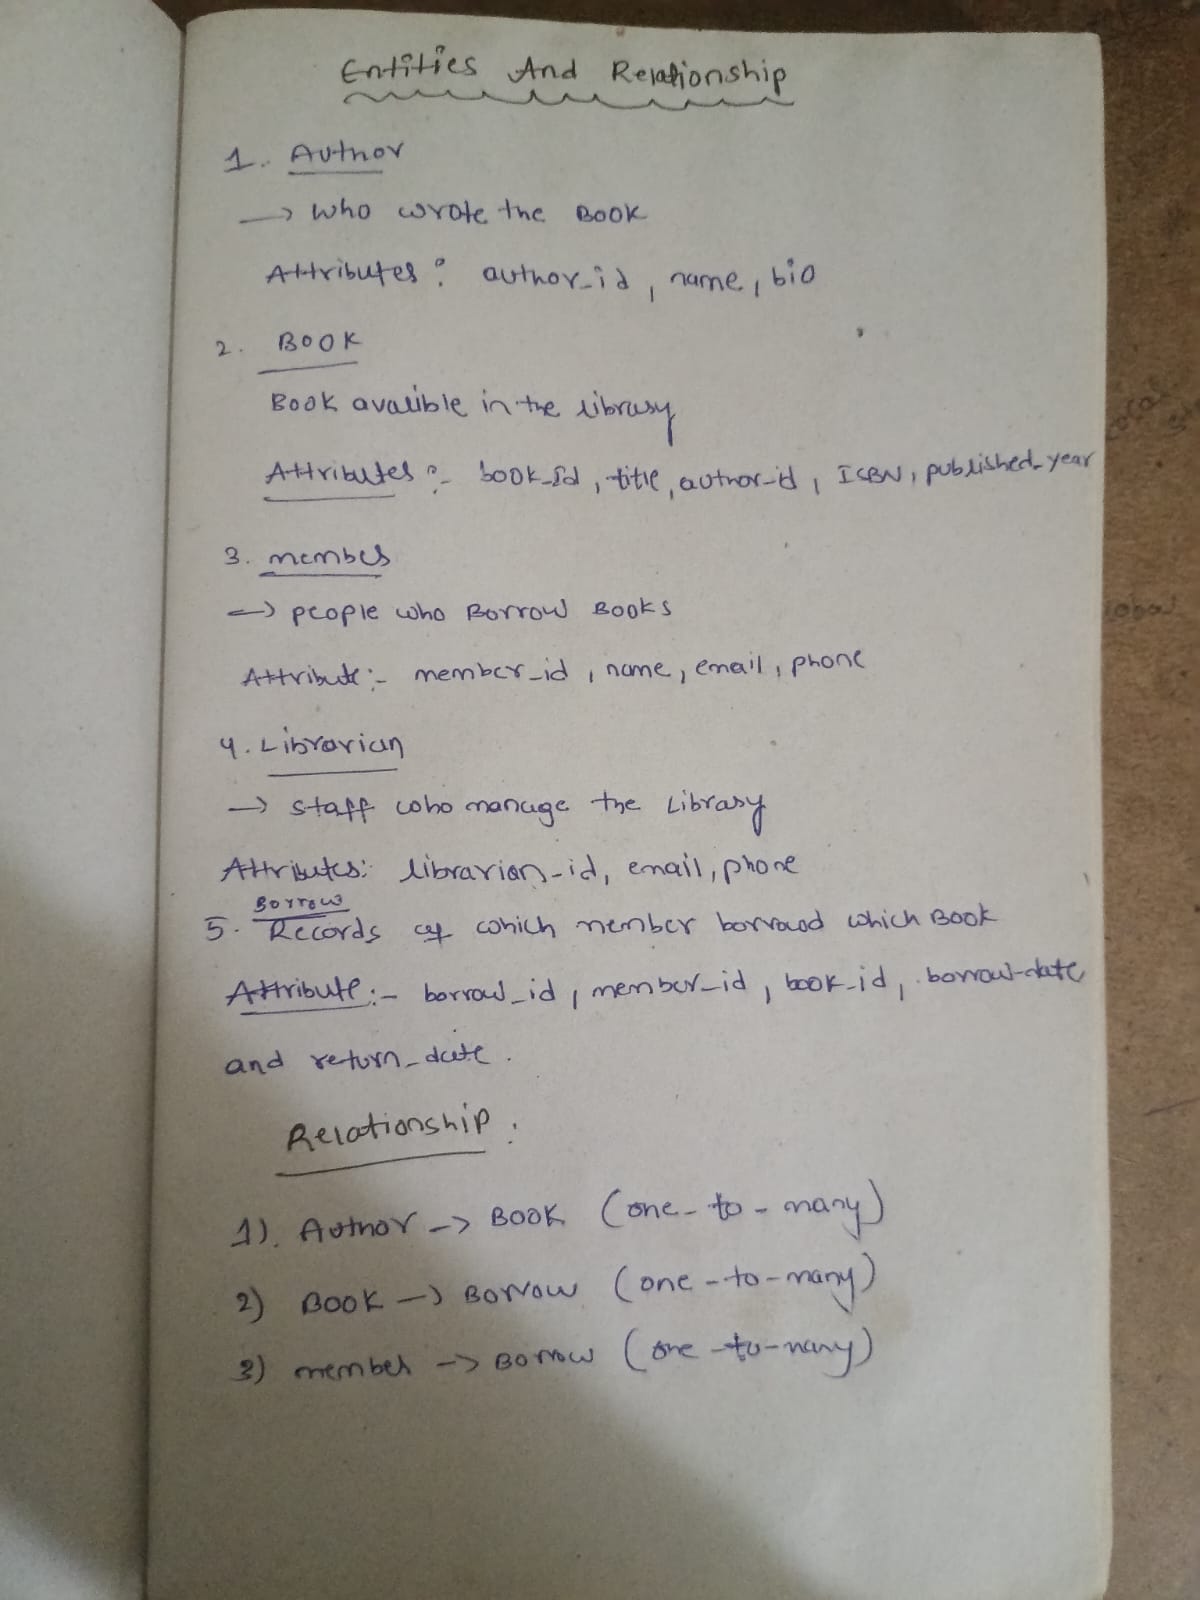 Entities And Relationship
1. Author
→ Who wrote the Book
Attributes: author_id, name, bio
2. Book
Book avalible in the library
Attributes:- book_Id, title, author-id, ISBN, published_year
3. member
→ people who Borrow Books
Attribute:- member_id, name, email, phone
4. Librarian
→ staff who manage the Library
Attributes: librarian_id, email, phone
Borrow
5. Records of which member borrowed which Book
Attribute:- borrow_id, member_id, book_id, borrow-date
and return_date.
Relationship.
1). Author -> Book (one-to-many)
2) Book -> Borrow (one-to-many)
3) member -> Borrow (one-to-many)